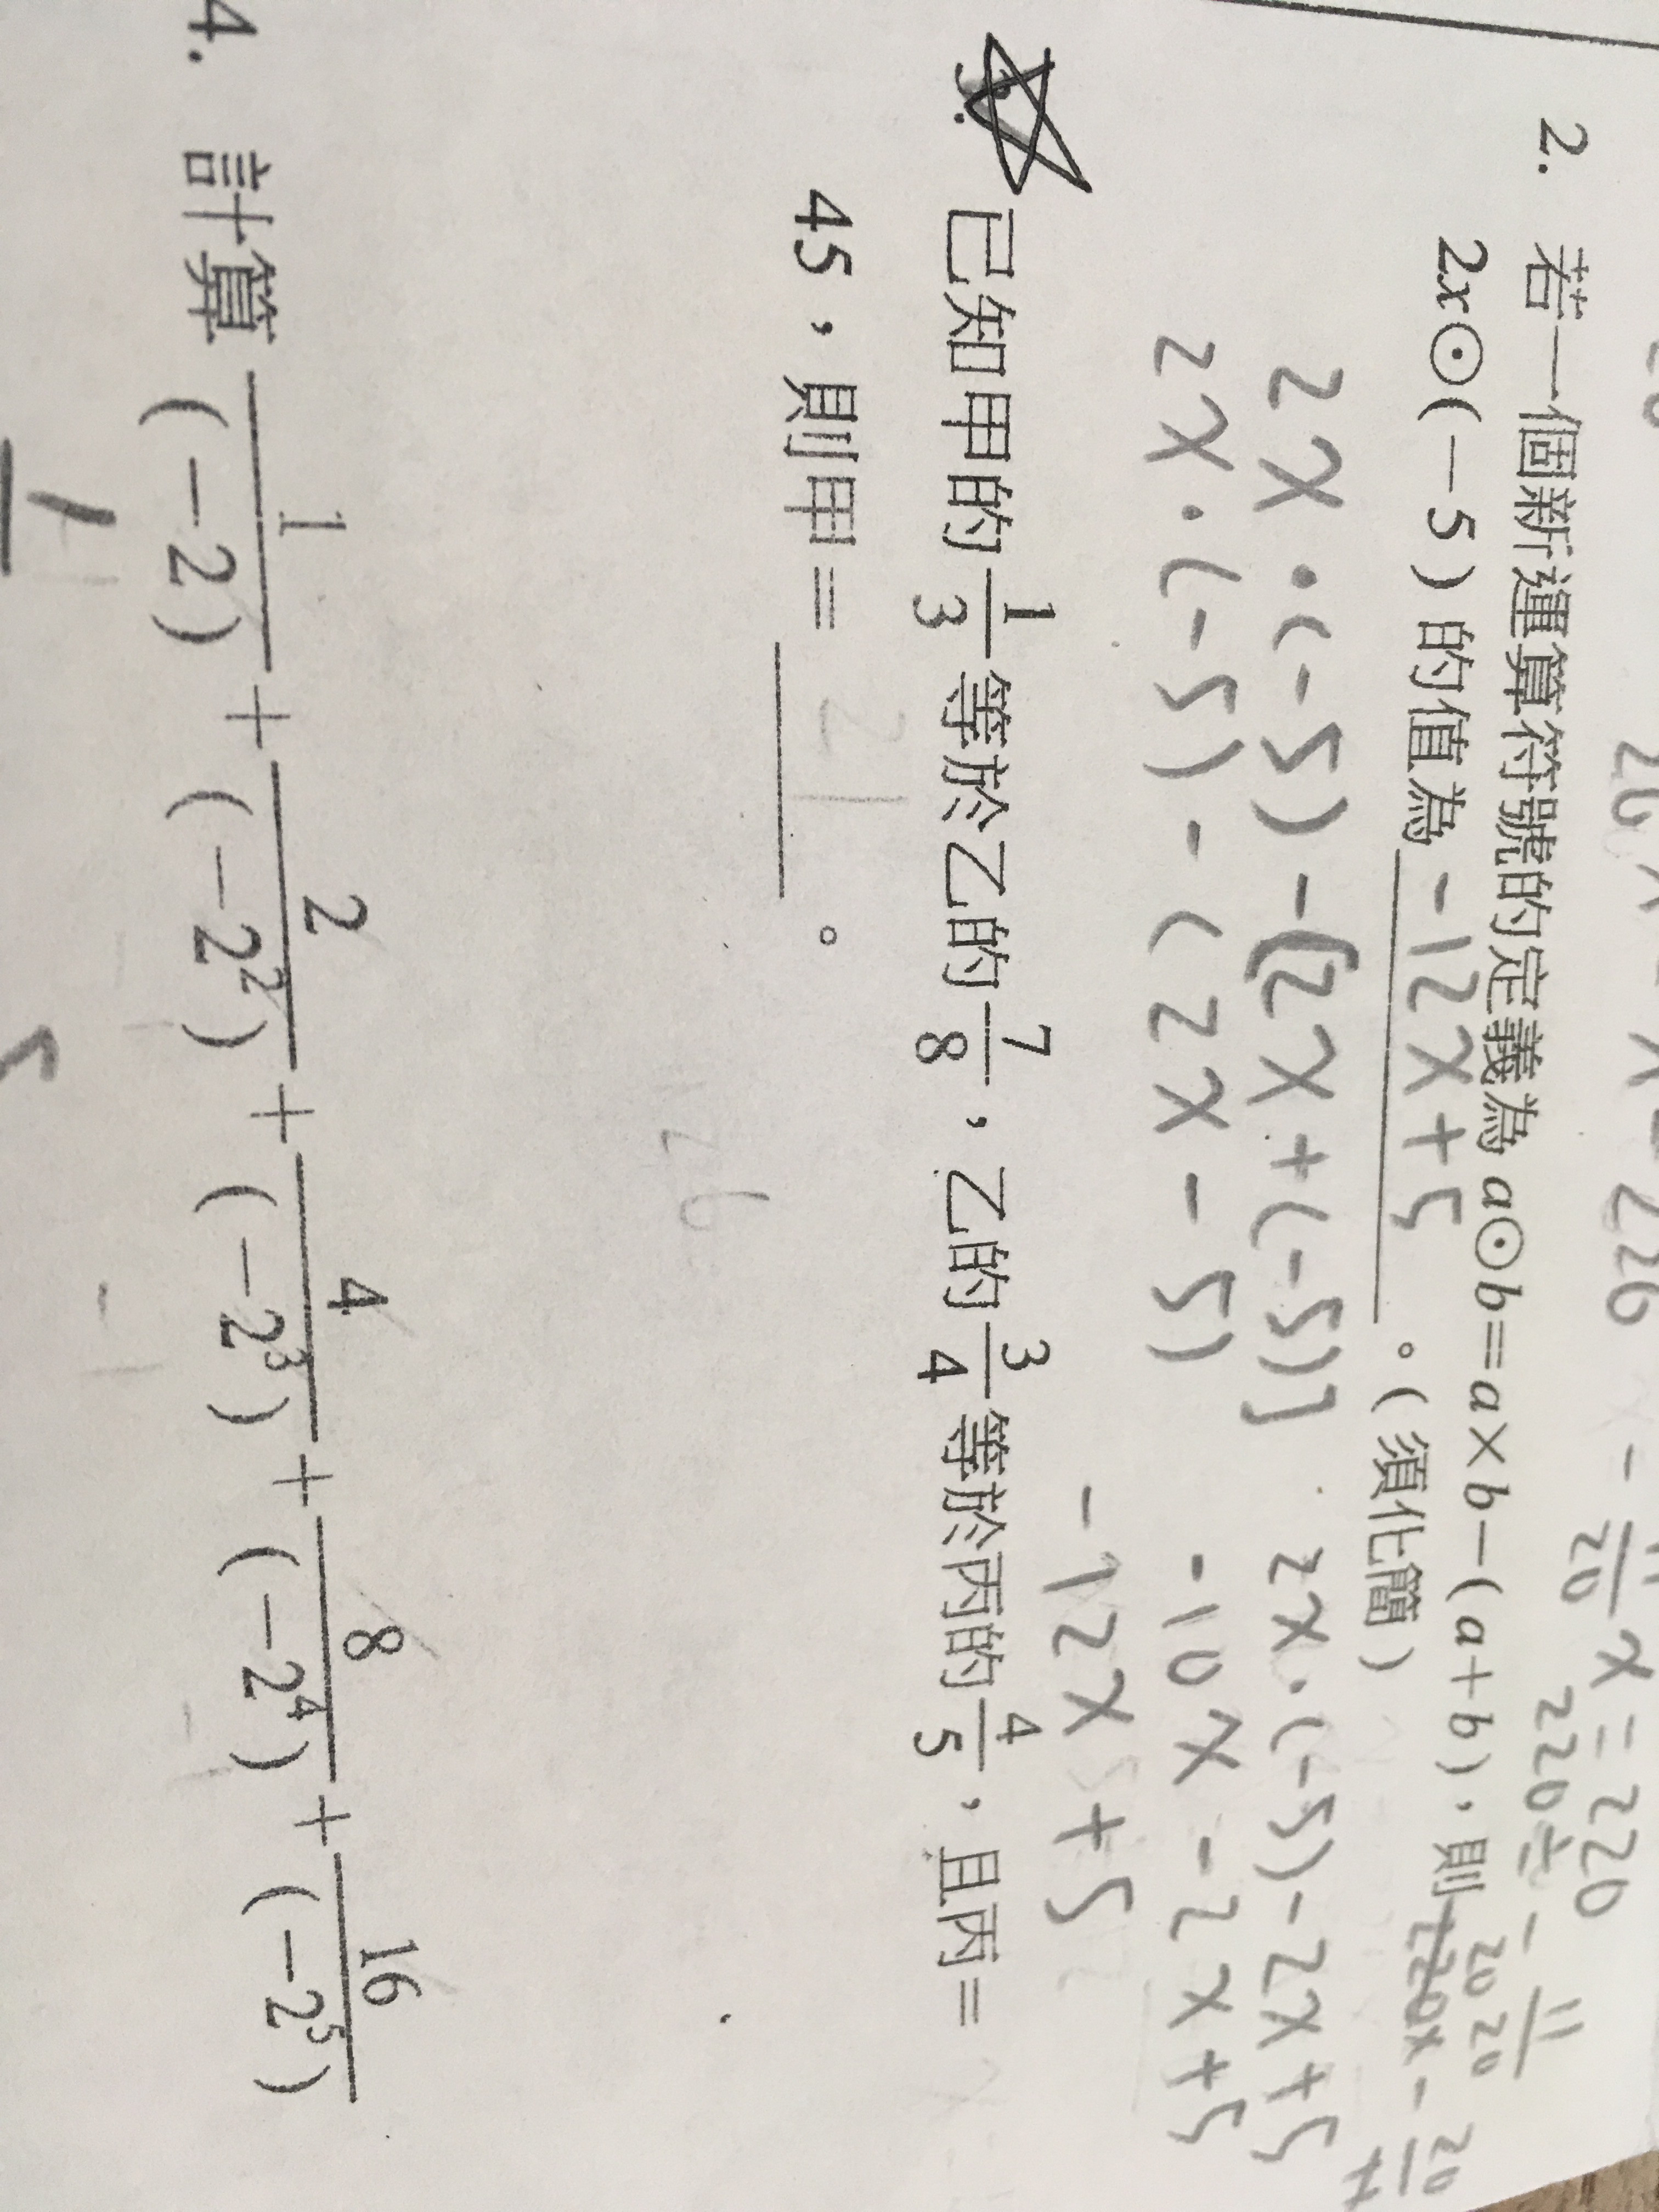 26x - x - 226x - 11/20 x = 220
220 ÷ - 11/20
2. 若一個新運算符號的定義為 a⊙b=a×b−(a+b)，則
2x⊙(−5)的值為 -12x+5 。（須化簡）
2x·(-5)-[2x+(-5)] 2x·(-5)-2x+5
2x·(-5)-(2x-5) -10x-2x+5
-12x+5
3. 已知甲的1/3等於乙的7/8，乙的3/4等於丙的4/5，且丙=
45，則甲= 21 。
26
4. 計算 1/(−2) + 2/(−2²) + 4/(−2³) + 8/(−2⁴) + 16/(−2⁵)